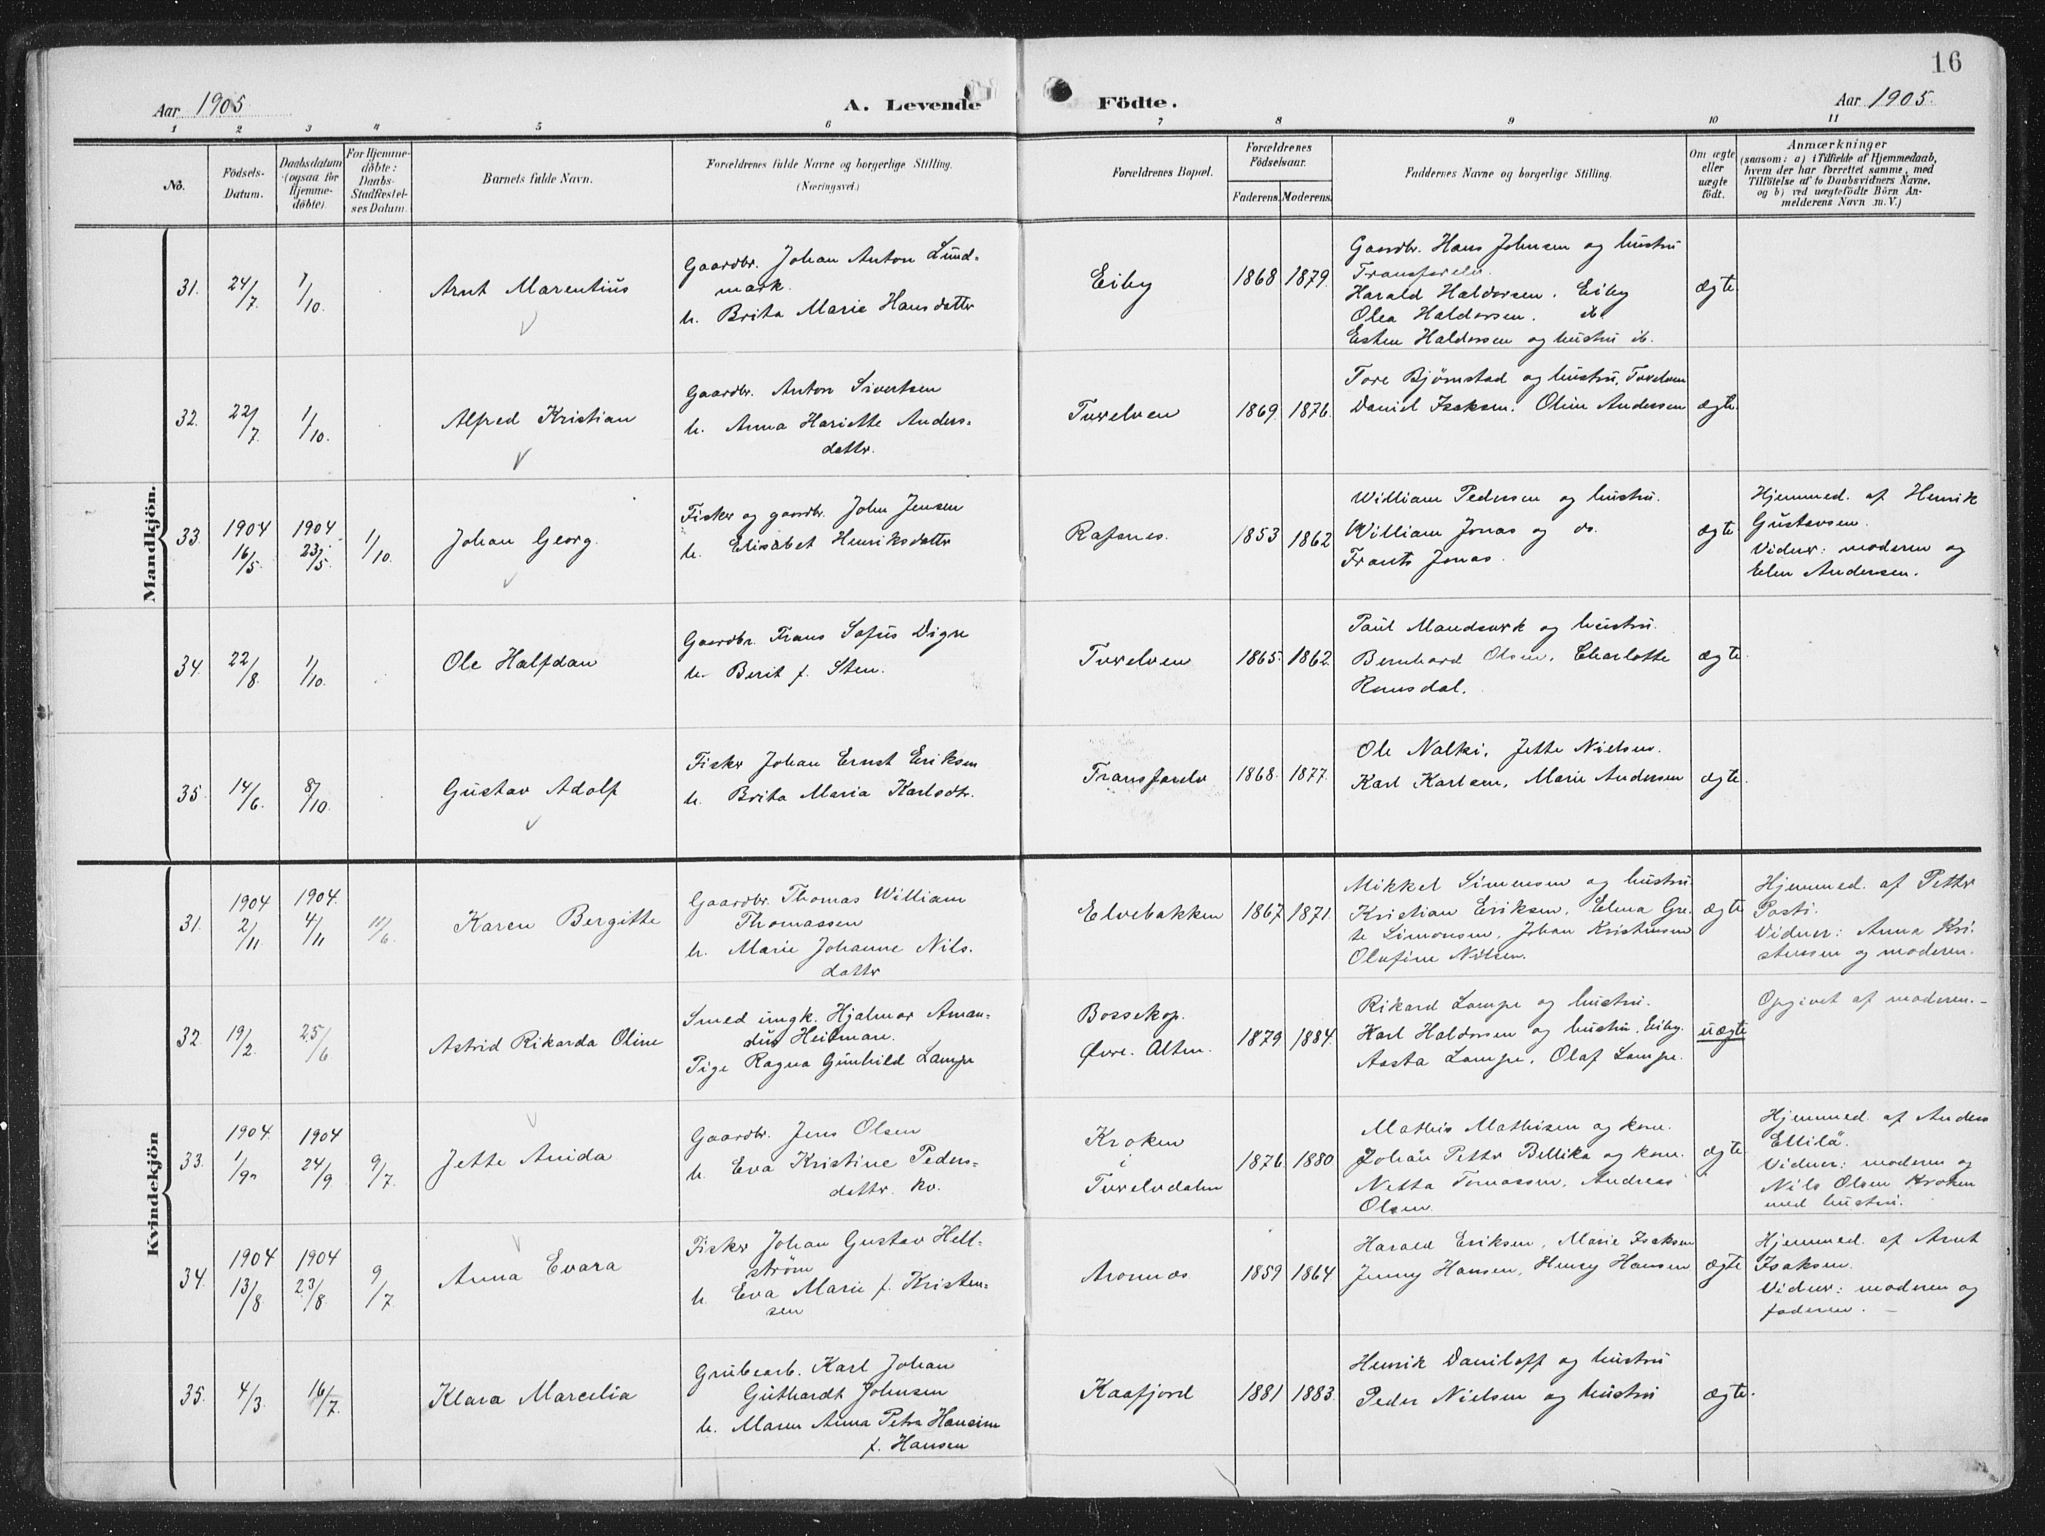 16
Aar 1905
A. Levende Födte.
Aar 1905.
1 2 3 4 5 6 7 8 9 10 11
No.
Födsels-Datum.
Daabsdatum (ogsaa for Hjemmedöbte).
For Hjemmedöbte: Daabs-Stadfæstelses Datum.
Barnets fulde Navn.
Forældrenes fulde Navne og borgerlige Stilling. (Næringsvei.)
Forældrenes Bopæl.
Forældrenes Födselsaar.
Faderens. Moderens.
Faddernes Navne og borgerlige Stilling.
Om ægte eller uægte födt.
Anmærkninger
(saasom: a) i Tilfælde af Hjemmedaab,
hvem der har forrettet samme, med
Tilföielse af to Daabsvidners Navne,
og b) ved uægtefödte Börn An-
melderens Navn m.V.)
Mandkjön.
31. 24/7 1/10 Arnt Marentius
Gaardbr. Johan Anton Lund-
mark.
h. Brita Marie Hansdatter
Eiby 1868 1879
Gaardbr. Hans Johnsen og hustru
Transfarelv.
Harald Haldorsen. Eiby
Olea Haldorsen. do
Esten Haldorsen og hustru ib.
ægte
32. 22/7 1/10 Alfred Kristian
Gaardbr. Anton Sivertsen
h. Anna Hariette Anders-
datter.
Tverelven 1869. 1876.
Tore Bjørnstad og hustru, Tverelven
Daniel Isaksen. Oline Andersen
ægte.
33. 1904 16/5 1904 23/5 1/10 Johan Georg.
Fisker og gaardbr. John Jensen
h. Elisabet Henriksdatter
Rafsnes. 1853 1862
William Pedersen og hustru.
William Jonas og do.
Frants Jonas.
ægte
Hjemmed. af Henrik
Gustavsen.
Vidner: moderen og
Elen Andersen.
34. 22/8 1/10 Ole Halfdan
Gaardbr. Frans Sofus Digre
h. Berit f. Sten.
Tverelven 1865. 1862.
Paul Mandsverk og hustru.
Bernhard Olsen, Charlotte
Romsdal.
ægte.
35. 14/6 8/10 Gustav Adolf
Fisker Johan Ernst Eriksen
h. Brita Maria Karlsdtr.
Transfarelv 1868. 1877.
Ole Nalki, Jette Nielsen.
Karl Karlsen, Marie Andersen
ægte.
Kvindekjön
31. 1904 2/11 1904. 4/11 11/6. Karen Bergitte
Gaardbr. Thomas William
Thomassen
h. Marie Johanne Nils-
datter
Elvebakken 1867 1871.
Mikkel Simensen og hustru.
Kristian Eriksen, Elena Gre-
te Simonsen, Johan Kristensen
Olufine Nilsen.
ægte
Hjemmed. af Petter
Posti.
Vidner: Anna Kri-
stensen og moderen.
32. 19/2 25/6 Astrid Rikarda Oline
Smed ungk. Hjalmar Aman-
dus Heitman.
Pige Ragna Gunhild Lampe
Bossekop.
Øvre. Alten. 1879 1884.
Rikard Lampe og hustru.
Karl Haldorsen og hustru, Eiby.
Aasta Lampe, Olaf Lampe.
uægte
Opgivet af moderen.
33. 1904. 1/9 1904 24/9 9/7 Jette Anida
Gaardbr. Jens Olsen
h. Eva Kristine Peders-
datter. kv.
Kroken
i
Tverelvdalen 1876 1880
Mathis Mathisen og kone.
Johan Petter Bellika og kone.
Netta Tomassen, Andreas
Olsen.
ægte.
Hjemmed af Anders
Ellilä.
Vidner: moderen og
Nils Olsen Kroken
med hustru.
34. 1904 13/8 1904 23/8 9/7 Anna Evara
Fisker Johan Gustav Hell-
strøm
h. Eva Marie f. Kristen-
sen
Aronnes 1859 1864
Harald Eriksen, Marie Isaksen
Jenny Hansen, Henry Hansen
ægte
Hjemmed. af Arnt
Isaksen.
Vidner: moderen og
faderen.
35. 4/3 16/7. Klara Marcelia
Grubearb. Karl Johan
Guthardt Johnsen
h. Maren Anna Petra Hansine
f. Hansen
Kaafjord 1881 1883.
Henrik Daniloff og hustru
Peder Nielsen og hustru
ægte.